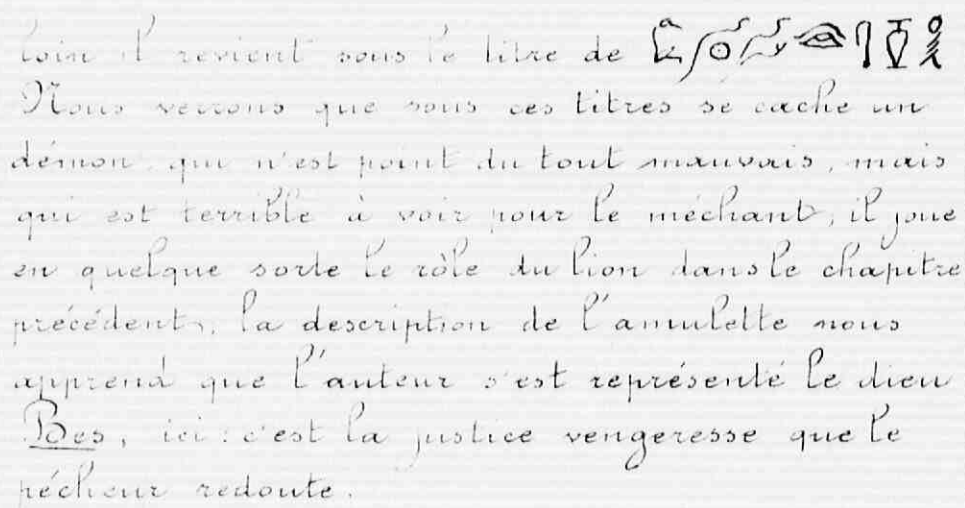 loin il revient sous le titre de
Nous verrons que sous ces titres se cache un
démon qui n'est point du tout mauvais, mais
qui est terrible à voir pour le méchant, il joue
en quelque sorte le rôle du lion dans le chapitre
précédent, la description de l'amulette nous
apprend que l'auteur s'est représenté le dieu
Bes, ici : c'est la justice vengeresse que le
pécheur redoute.